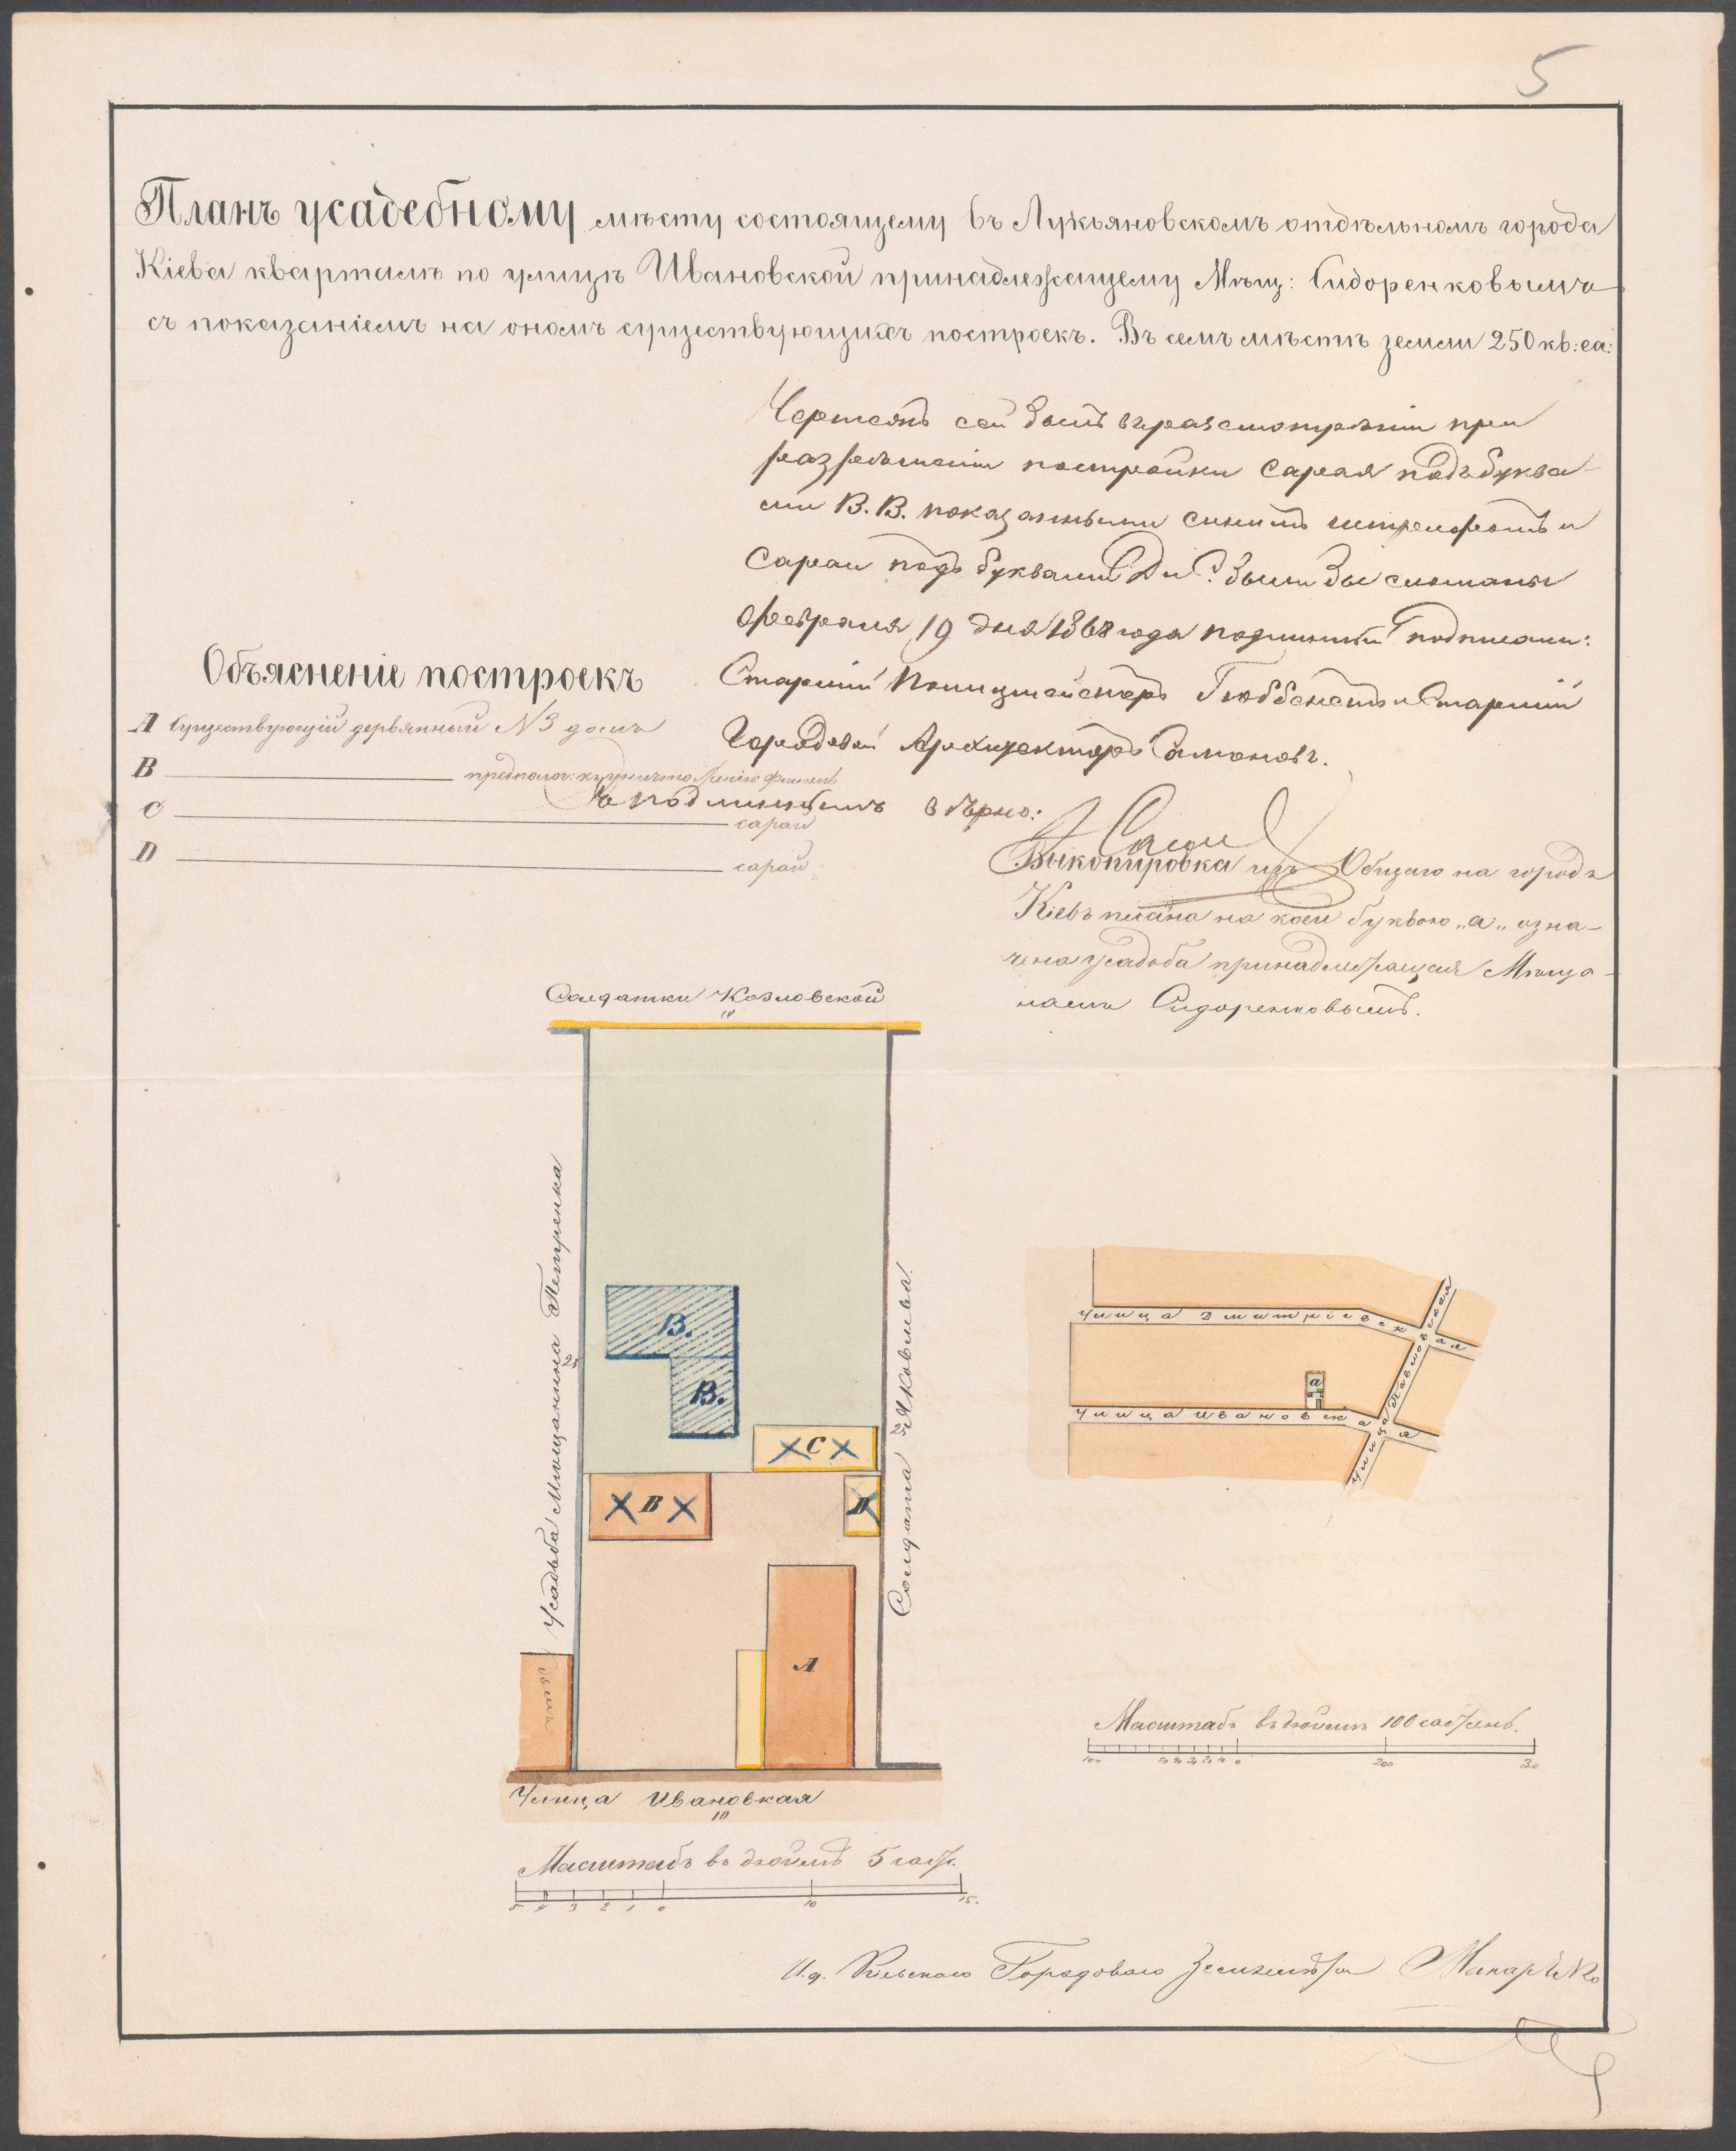 5
Планъ усадебному мѣсту состоящему въ Лукьяновскомъ отдѣльномъ города
Кіева кварталѣ по улицѣ Ивановской принадлежащему Мѣщ: Сидоренковымъ
съ показаніемъ на ономъ существующихъ построекъ. Въ семъ мѣстѣ земли 250 кв: са:
Чертежъ сей былъ въ разсмотреніи при
разрешеніи постройки сарая подъ буква-
ми В. В. показанными синимъ штрихомъ и
сараи подъ буквами D и С. были бы сломаны
февраля 19 дня 1868 года подлинный подписали:
Старшій Полицмейстеръ Гюббенетъ и Старшій
Городовой Архитекторъ
Съ подлиннымъ вѣрно:
Объясненіе построекъ
A Существующій деревянный N3 домъ
B предполож: къ уничтоженію флигель
C сарай
D сарай
Выкопировка изъ Общаго на городъ
Кіевъ плана на коей буквою „а„ озна-
чена усадьба принадлежащая Мѣща-
намъ Сидоренковымъ.
Солдатки Козловской
10
Усадьба Мѣщанина Петренка
25
Солдата Яковлева.
25
В.
В.
C
B
D
A
Улица Ивановская
10
Масштабъ въ дюймѣ 5 саж.
5 4 3 2 1 0 10 15.
Улица Дмитріевская
а
Улица Ивановская
Улица Павловская
Масштабъ въ дюймѣ 100 саженъ.
100 0 200 30
И. д. Кіевскаго Городоваго Землемѣра